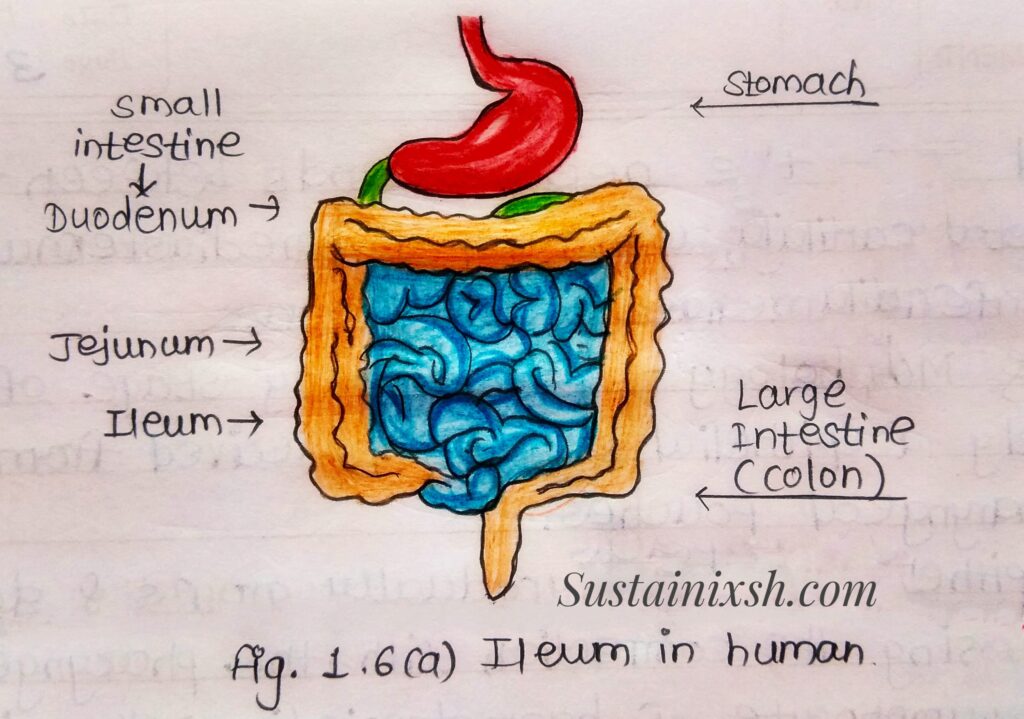 Stomach
small
intestine
Duodenum
Jejunum
Ileum
Large
Intestine
(colon)
Sustainixsh.com
fig. 1.6(a) Ileum in human.